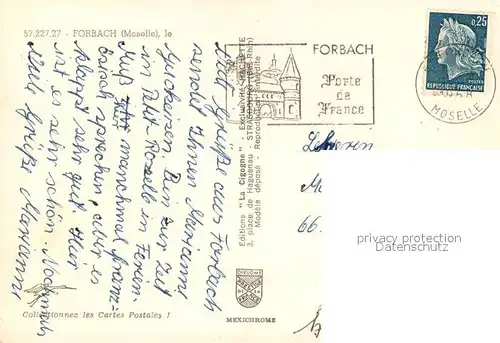 57.227.27 - FORBACH (Moselle), le
Viele Grüße aus Forbach
sendet Ihnen Marianne
Bin zur Zeit
in Petite Roselle in Ferien.
Muß manchmal franz-
ösisch sprechen, aber es
klappt sehr gut. Hier
ist es sehr schön. Nochmals
viele Grüße Marianne
Collectionnez les Cartes Postales !
Editions "La Cigogne" - Exclusivité HACHETTE
3, place de Haguenau - STRASBOURG (Bas-Rhin)
Modèle déposé - Reproduction interdite
DIPLOME
MEXICHROME
FORBACH
Porte
de
France
0,25
REPUBLIQUE FRANÇAISE
POSTES
MOSELLE
66.
privacy protection
Datenschutz